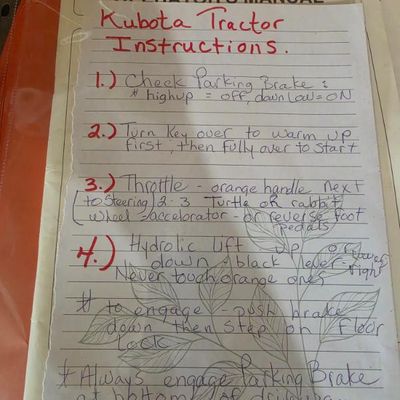 OPERATOR'S MANUAL
Kubota Tractor
Instructions.
1.) Check Parking Brake :
# high up = off, down Low = ON
2.) Turn Key over to warm up
first, then fully over to start
3.) Throttle - orange handle next
to Steering 2-3 Turtle or rabbit
wheel - accelorator - or reverse foot
pedals
4.) Hydrolic Lift up or lower
down black lever - right
Never touch orange one,
# to engage - push brake
down then step on floor
Lock
* Always engage Parking Brake
at bottom of driveway